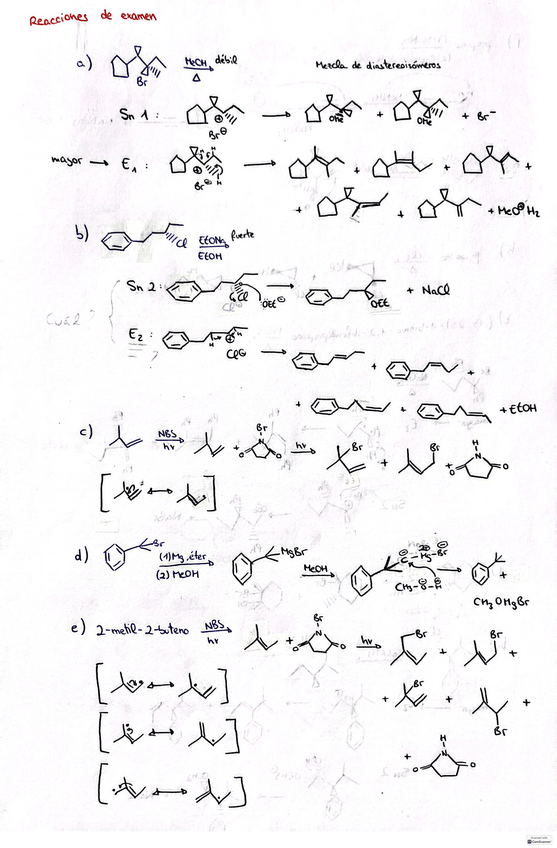 Reacciones de examen
a) Br MeOH débil Δ Mezcla de diastereoisómeros
Sn 1: ⊕ Br⊖ → OMe + OMe + Br⁻
mayor → E₁: H H ⊕ Br⊖ H → + + +
+ + + MeO⊕H₂
b) Cl EtONa fuerte
EtOH
Sn 2: Cl ÖEt⊖ → OEt + NaCl
Cuál?
E₂: H ⊕ H Cl⊖ → + +
?
+ + + EtOH
c) NBS hν → + Br N O O hν → Br + Br + H N O O
[ ↔ ]
d) Br (1) Mg, éter → MgBr MeOH → ⊖ C Mg-Br ⊖ → +
(2) MeOH
CH₃-O-H
CH₃OMgBr
e) 2-metil-2-buteno NBS → + Br N O O hν → Br + Br +
hν
[ ↔ ] + Br + Br +
[ ↔ ]
+ H N O O
[ ↔ ]
CamScanner